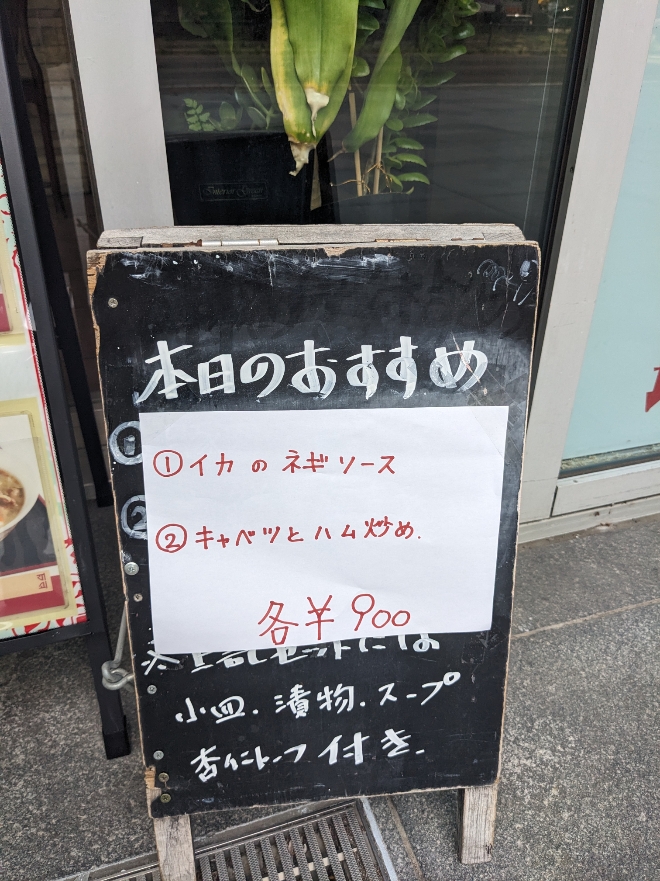 本日のおすすめ
①イカのネギソース
②キャベツとハム炒め.
各¥900
セットには
小皿.漬物.スープ
杏仁トーフ付き.